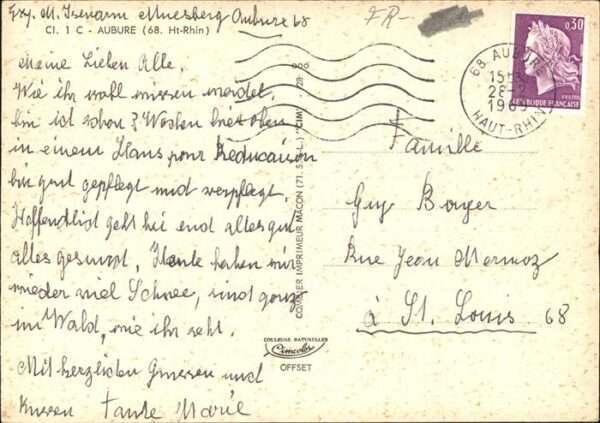 Exp. M. Isenarm Muesberg Aubure 68
CI. 1 C - AUBURE (68. Ht-Rhin)
FR-
0,30
68 AUBURE
28-2
1969
HAUT-RHIN
REPUBLIQUE FRANÇAISE
Meine Lieben Alle,
Wie ihr wohl wissen werdet,
bin ich schon 3 Wochen hier oben
in einem Haus pour Reducaison
bin gut gepflegt und verpflegt.
Hoffendlich geht bei euch alles gut
alles gesund, Heute haben wir
wieder viel Schnee, sind ganz
im Wald, wie ihr seht.
Mit herzlichen Gruessen und
Kussen Tante Marie
COMBIER IMPRIMEUR MACON (71. S.-&-L.) "CIM"
COULEURS NATURELLES
Cimcolor
OFFSET
Famille
Guy Boyer
Rue Jean Mermoz
à St. Louis 68